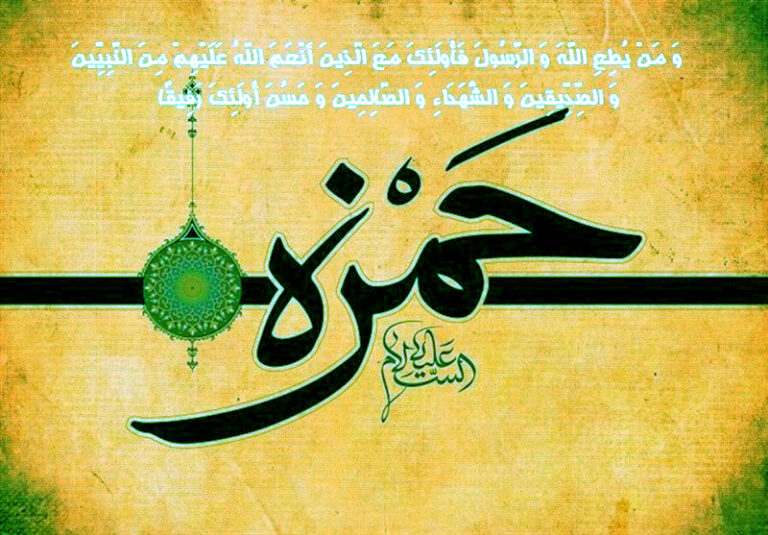 وَ مَنْ يُطِعِ اللّهَ وَ الرَّسُولَ فَأُولَئِكَ مَعَ الَّذِينَ أَنْعَمَ اللّهُ عَلَيْهِمْ مِنَ النَّبِيِّينَ
وَ الصِّدِّيقِينَ وَ الشُّهَدَاءِ وَ الصَّالِحِينَ وَ حَسُنَ أُولَئِكَ رَفِيقًا
حَمْزه
علیه السّلام